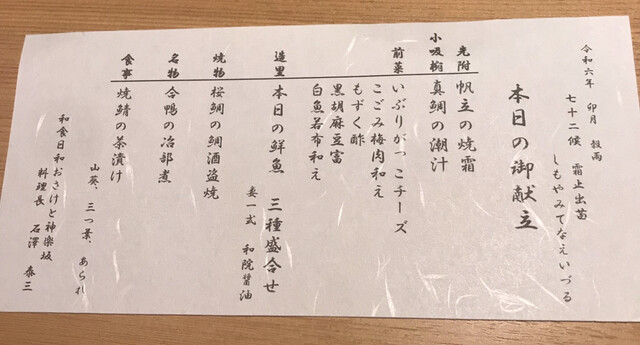 令和六年 卯月 穀雨
七十二候 霜止出苗
しもやみてなえいづる
本日の御献立
先附 帆立の焼霜
小吸椀 真鯛の潮汁
前菜 いぶりがっこチーズ
こごみ梅肉和え
もずく酢
黒胡麻豆富
白魚若布和え
造里 本日の鮮魚 三種盛合せ
妻一式 和院醤油
焼物 桜鯛の鯛酒盗焼
名物 合鴨の冶部煮
食事 焼鯖の茶漬け
山葵、三つ葉、あられ
和食日和おさけと神楽坂
料理長 石澤 泰三